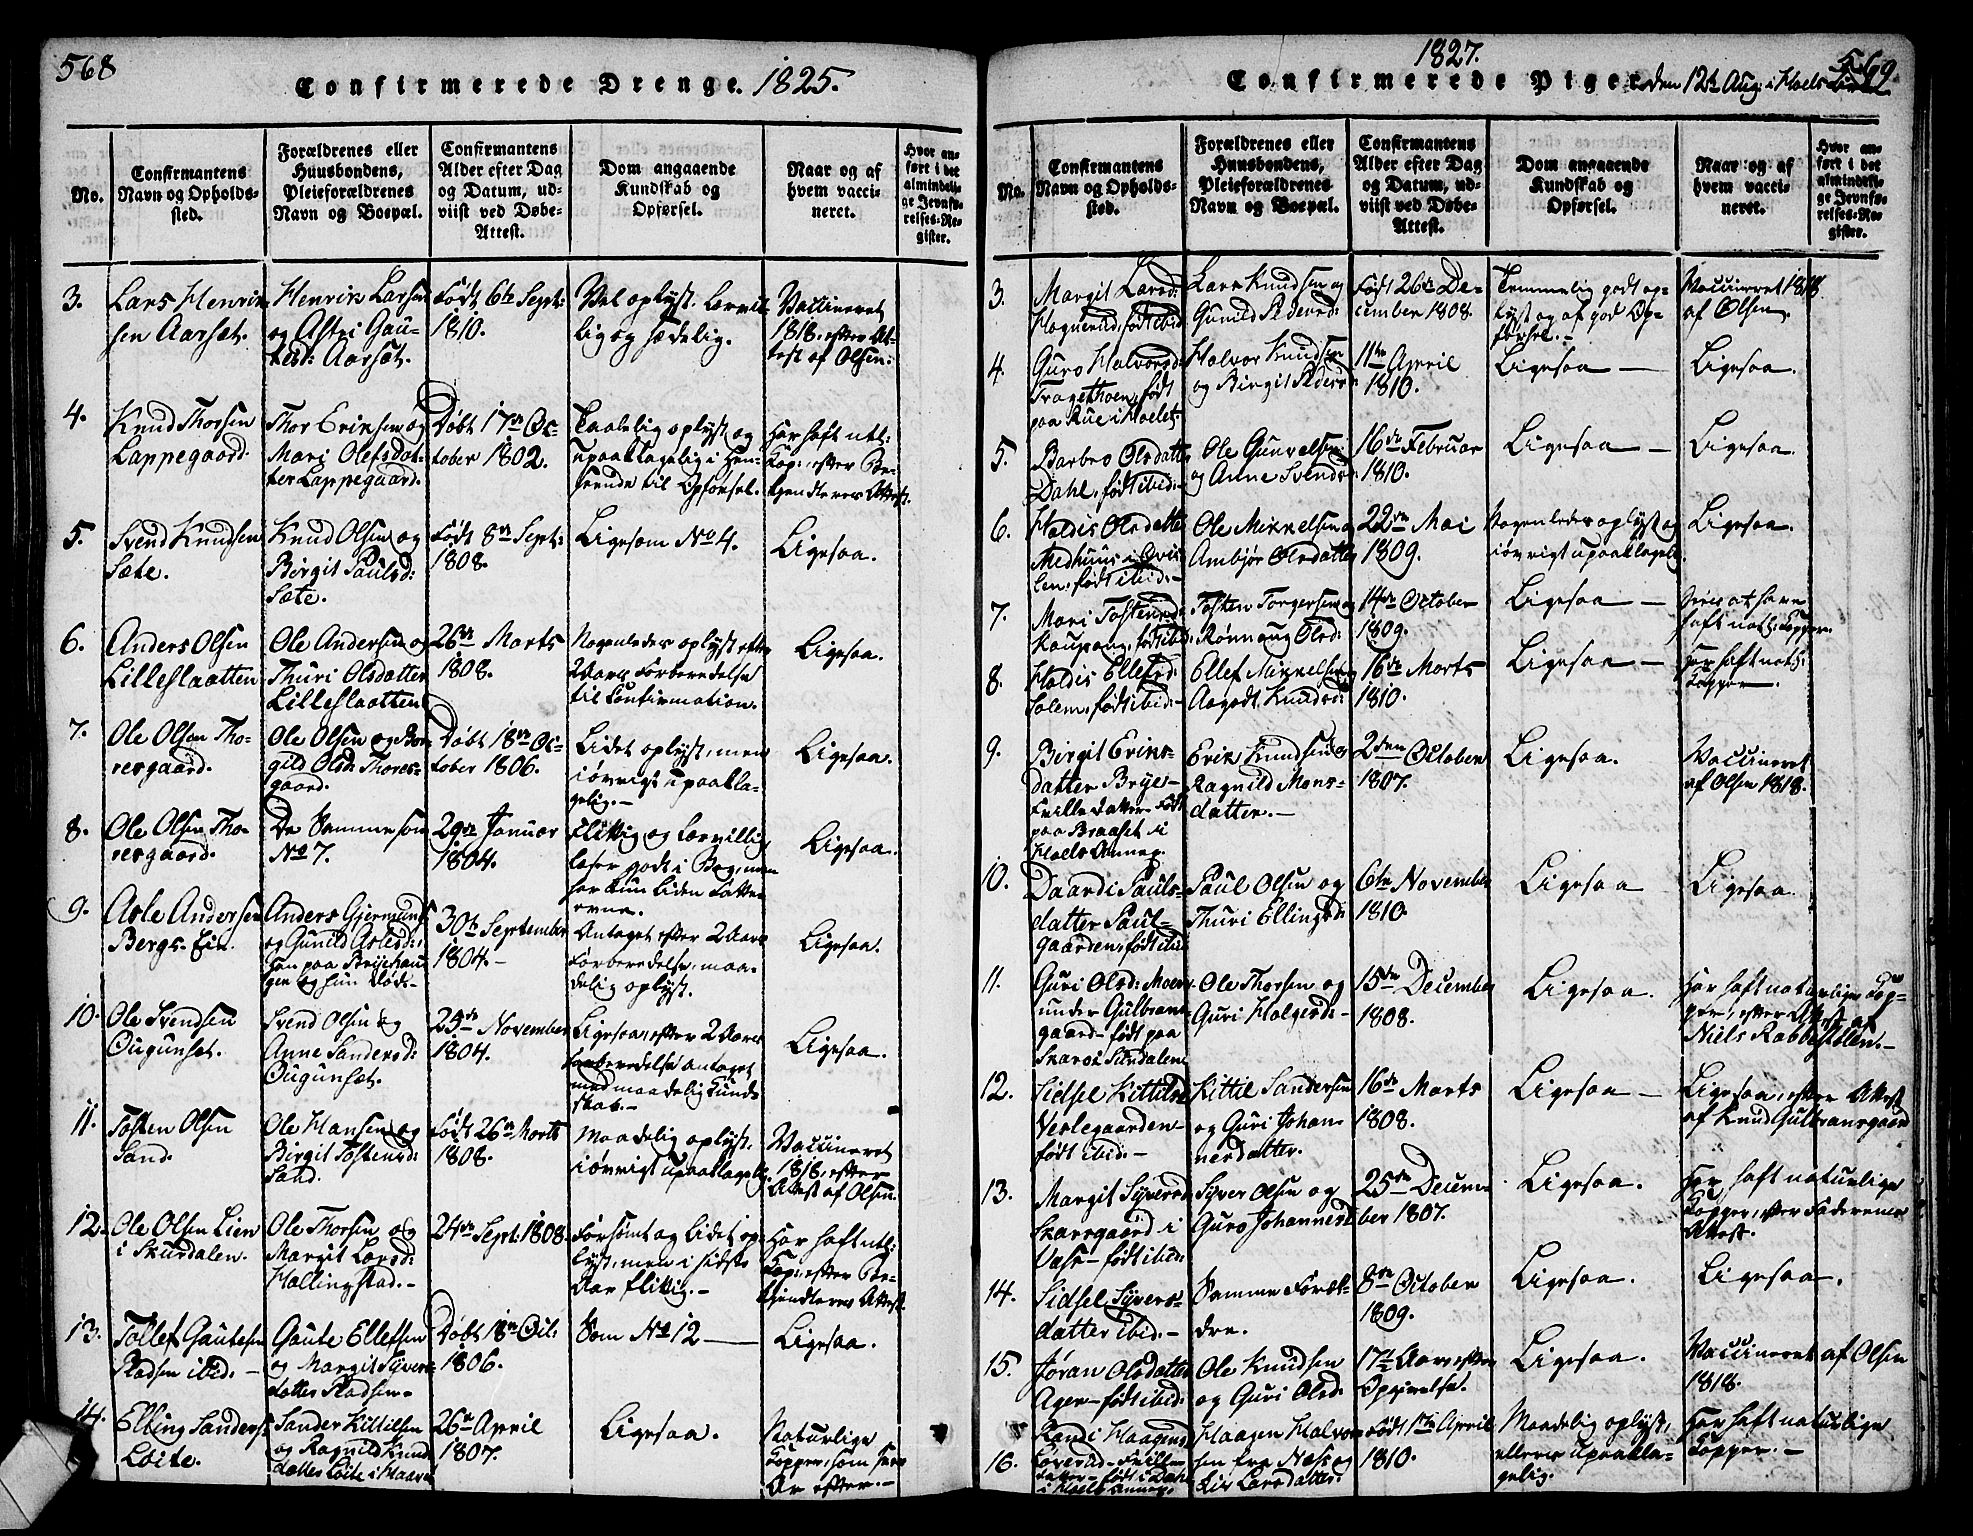 568
Confirmerede Drenge. 1825.
No.
Confirmantens
Navn og Opholds-
sted.
Forældrenes eller
Huusbondens,
Pleieforældrenes
Navn og Boepæl.
Confirmantens
Alder efter Dag
og Datum, ud-
viist ved Døbe-
Attest.
Dom angaaende
Kundskab og
Opførsel.
Naar og af
hvem vacci-
neret.
Hvor an-
ført i det
almindeli-
ge Jevnfø-
relses-Re-
gister.
3.
Lars Henrik-
sen Aarset.
Henrik Larsen
og Astri Gau-
tesd: Aarset.
Født 6te Sept:
1810.
Vel oplyst. Lærvil-
lig og sædelig.
Vaccineret
1818. efter At-
test af Olsen:
4.
Knud Thorsen
Lappegaard.
Thor Eriksen og
Mari Olefsdat-
ter Lappegaard.
Døbt 17de Oc-
tober 1802.
Taalelig oplyst og
upaaklagelig i Hen-
seende til Opførsel.
Har haft ntl:
Kop:, efter Be-
kjendteres Attest.
5.
Svend Knudsen
Sæte.
Knud Olsen og
Birgit Paulsd:
Sæte.
Født 8de Sept:
1808.
Ligesom No 4.
Ligesaa.
6.
Anders Olsen
Lilleslaatten
Ole Andersen og
Thuri Olsdatter
Lilleslaatten
26de Marts
1808.
Nogenledes oplyst efter
2 Aars Forberedelse
til Confirmation.
Ligesaa.
7.
Ole Olsen Tho-
resgaard.
Ole Olsen og
Olsd: Thores-
gaard.
Døbt 18de Oc-
tober 1806.
Lidet oplyst, men
iøvrigt upaakla-
gelig. —
Ligesaa.
8.
Ole Olsen Tho-
resgaard.
De Samme som
No 7.
29de Januar
1804.
Flittig og Lærvillig,
læser godt i Bog, men
har kun liden Fatte-
evne.
Ligesaa.
9.
Asle Andersen
Bergs-Eie.
Anders Gjermunds:
og Gunild Aslesd:,
han paa Brijehau-
gen og hun død. —
30te September
1804. —
Antaget efter 2 Aars
Forberedelse, maa-
delig oplyst.
Ligesaa.
10.
Ole Svendsen
Ougunset.
Svend Olsen og
Anne Sandersd:
Ougunset.
25de November
1804.
Ligesaa, efter 2 Aars
Forberedelse antaget
med maadelig Kund-
skab. —
Ligesaa.
11.
Tosten Olsen
Sand.
Ole Hansen og
Birgit Tostensd:
Sand.
Født 26de Marts
1808.
Maadelig oplyst.
iøvrigt upaaklagelig
Vaccineret
1818. efter
Attest af Olsen.
12.
Ole Olsen Lien
i Skurdalen.
Ole Thorsen og
Margit Larsd:
Hallingstad. —
24de Sept: 1808.
Forsømt og lidet op-
lyst, men i sidste
Aar flittig. —
Har haft ntl:
Kop:, efter Be-
kjendteres Attest.
13.
Tollef Gautesen
Pladsen ibid. —
Gaute Ellefsen
og Margit Syvers-
datter Pladsen —
Døbt 18de Oct:
1806.
Som No 12 —
Ligesaa.
14.
Elling Sanders:
Løite.
Sander Kittilsen
og Ragnild Knuds-
datter Løite i
26de April
1807.
Ligesaa.
Naturlige
Kopper, som
Ar efter. —
569.
1827.
Confirmerede Piger den 12te Aug: i Hoels Kirke
No.
Confirmantens
Navn og Opholds-
sted.
Forældrenes eller
Huusbondens,
Pleieforældrenes
Navn og Boepæl.
Confirmantens
Alder efter Dag
og Datum, ud-
viist ved Døbe-
Attest.
Dom angaaende
Kundskab og
Opførsel.
Naar og af
hvem vacci-
neret.
Hvor an-
ført i det
almindeli-
ge Jevnfø-
relses-Re-
gister.
3.
Margit Larsd:
Hognerud, født ibid.
Lars Knudsen og
Gunild Pedersd:
Født 26de De-
cember 1808.
Temmelig godt op-
lyst og af god Op-
førsel. —
Vaccineret 1818
af Olsen.
4.
Guro Halvorsd:
Tragethoen, født
paa Rue i Hoelet.
Halvor Knudsen
og Birgit Pedersd:
11te April
1810.
Ligesaa —
Ligesaa.
5.
Barbro Olsdatter
Dahl, født ibid. —
Ole Gunvelsen
og Anne Svendsd:
16de Februar
1810.
Ligesaa —
Ligesaa.
6.
Haldis Olsdatter
Medhuus i Øvis-
len, født ibid. —
Ole Mikkelsen og
Ambjør Olsdatter
22de Mai
1809.
Nogenledes oplyst og
iøvrigt upaaklagel:
Ligesaa.
7.
Mari Tostensd:
Koupang, født ibid.
Tosten Torgersen og
Rønnoug Olsd:
14de October
1809.
Ligesaa —
Siges at have
haft natl: Kopper.
8.
Haldis Ellefsd:
Solem, født ibid. —
Ellef Mikkelsen og
Aagodt Knudsd:
16de Marts
1810.
Ligesaa —
Har haft natl:
Kopper —.
9.
Birgit Eriks-
datter Brije-
Frilledatter født
paa Braaset i
Hoels Annex.
Erik Knudsen og
Ragnild Mons-
datter. —
2den October
1807.
Ligesaa.
Vaccineret
af Olsen 1818.
10.
Daardi Pauls-
datter Paul-
gaarden, født ibid
Paul Olsen og
Thuri Ellingsd:
6te November
1810.
Ligesaa
Ligesaa.
11.
Guri Olsd: Moen
under Gulbrans-
gaard — født paa
Skaro i Surdalen
Ole Thorsen og
Guri Holgersd: —
15de December
1808.
Ligesaa.
Har haft naturlige Kop-
per, efter Attest af
Niels Rabbestølen. —
12.
Sidsel Kittilsd:
Verlegaarden —
født ibid. —
Kittil Sandersen
og Guri Johan-
nesdatter.
16de Marts
1808.
Ligesaa —
Ligesaa, efter Attest
af Knud Gulbransgaard
13.
Margit Syversd:
Skarsgaard i
Vasf — født ibid:
Syver Olsen og
Guro Johannesd:
25de Decem-
ber 1807.
Ligesaa.
Har haft naturlige
Kopper, efter Faderens
Attest.
14.
Sidsel Syvers-
datter ibid. —
Samme Foræl-
dre.
8de October
1809.
Ligesaa.
Ligesaa.
15.
Jøran Olsdatter
Ager — født ibid:
Ole Knudsen
og Guri Olsd:
17½ Aar efter
Opgivelse.
Ligesaa.
Vaccineret af Olsen
1818.
16.
Kandi Haagensd:
Løverud — Frille-
datter — født i Dahl
i Hoels Annex.
Haagen Halvor-
sen fra Næss og
Siv Larsdatter:
Født 17de April
1810.
Maadelig oplyst,
ellers upaakla-
gelig.
Har haft naturlige
Kopper. —